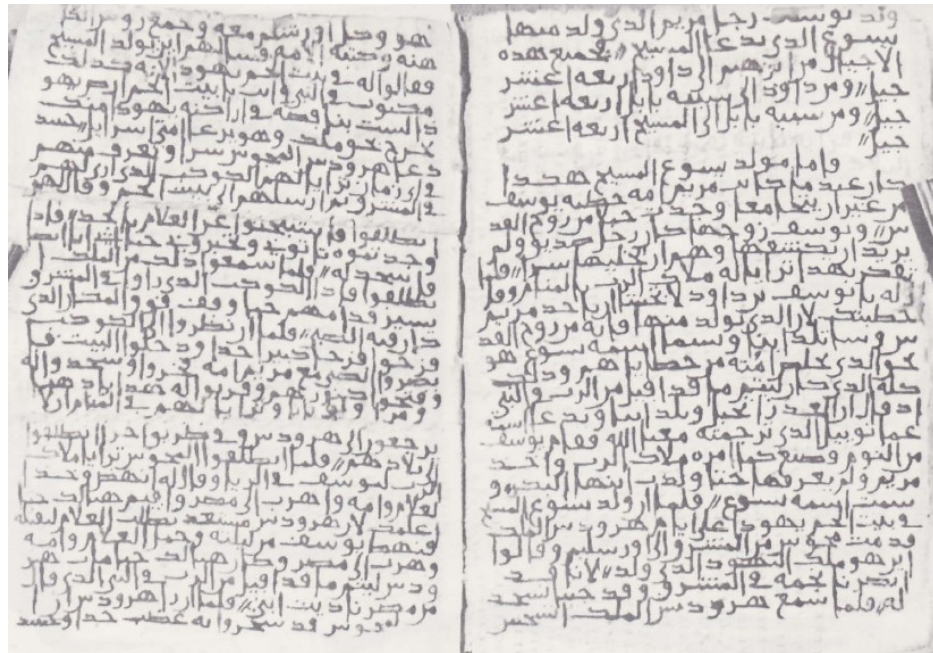 ولد يوسف رجل مريم الذي ولد منها
يسوع الذي يدعا المسيح فجميع هذه
الاجيال من ابرهيم الى داود اربعه عشر
جيل ومن داود الى سبيه بابل اربعه عشر
جيل ومن سبيه بابل الى المسيح اربعه عشر
جيل
واما مولد يسوع المسيح هكدا
كان عندما كانت مريم امه خطبه يوسف
من غير ان يجامعا وجدت حبلا من روح القد
س ويوسف زوجها كان رجل صديق ولم
يريد ان يشنعها وهم ان يخليها سرا
بهذا ترايا له ملاك الرب في المنام وقل
له يا يوسف بن داود لا تخشا ان ياخد مريم
خطيبتك لان الذي يولد منها فانه من روح القد
س وستلد ابنا وتسما اسمه يسوع هو
الذي يخلص امته من خطاياهم وذلك
كله الذي كان ليتم ما قد قيل من الرب في النبي
اذ قال ان العذرا تحبل وتلد ابنا ويدعا اسمه
عمانوييل الذي ترجمته معنا الله فقام يوسف
من النوم وصنع كما امره ملاك الرب واخذ
مريم ولم يعرفها حتا ولدت ابنها البكر و
سمت اسمه يسوع فلما ولد يسوع المسيح
في بيت لحم يهوذا على ايام هرودس الملك
قدمت مجوس من المشرق الى اورسليم وقالوا
اين هو ملك اليهود الذي ولد لانا قد
ابصرنا نجمه في المشرق وقد جينا نسجد
له فلما سمع هرودس الملك سجس
هو وكل اورشليم معه وجمع روس الك
هنه وكتبه الامه فسالهم اين يولد المسيح
فقالوا له في بيت لحم يهودا لانه كذلك
مكتوب في النبي وانت يا بيت لحم ارض يهو
ذا لست بناقصه في اراكنه يهوذا منك
يخرج ملك وهو يرعا امتي اسرايل حينيذ
دعا هرودس المجوس سرا وتعرف منهم
في اي زمان ترايا لهم الكوكب الذي
في المشرق ثم ارسلهم الى بيت لحم وقال لهم
انطلقوا عن الغلام بالجد فاذا
وجدتموه
نسجد له فلما سمعوا ذلك من الملك
انطلقوا فاذ الكوكب الذي راوا في المشرق
يسير قدامهم حتا وقف فوق المكان الذي
كان فيه الصبي فلما ان نظروا الى الكوكب
فرحوا فرحا كبير جدا ودخلوا البيت
الصبي مع مريم امه فخروا وسجدوا له
وفتحوا وقربوا له
في المنام ان لا
يرجعون الى هرودس وفي طريق اخرا انطلقوا
الى بلادهم فلما انطلقوا المجوس ترايا ملاك
الرب ليوسف في الريا وقال له انهض وخد
الغلام وامه واهرب الى مصر واقيم هناك حتا
لان هرودس يطلب الغلام
فنهض يوسف من ليلته وحمل الغلام وامه
وهرب الى مصر وكان هناك حتا مات هر
ودس ليتم ما قد قيل من الرب في النبي الذي قال
من مصر ناديت ابني فلما ان راى هرودس ان
المجوس قد سخروا به غضب جدا